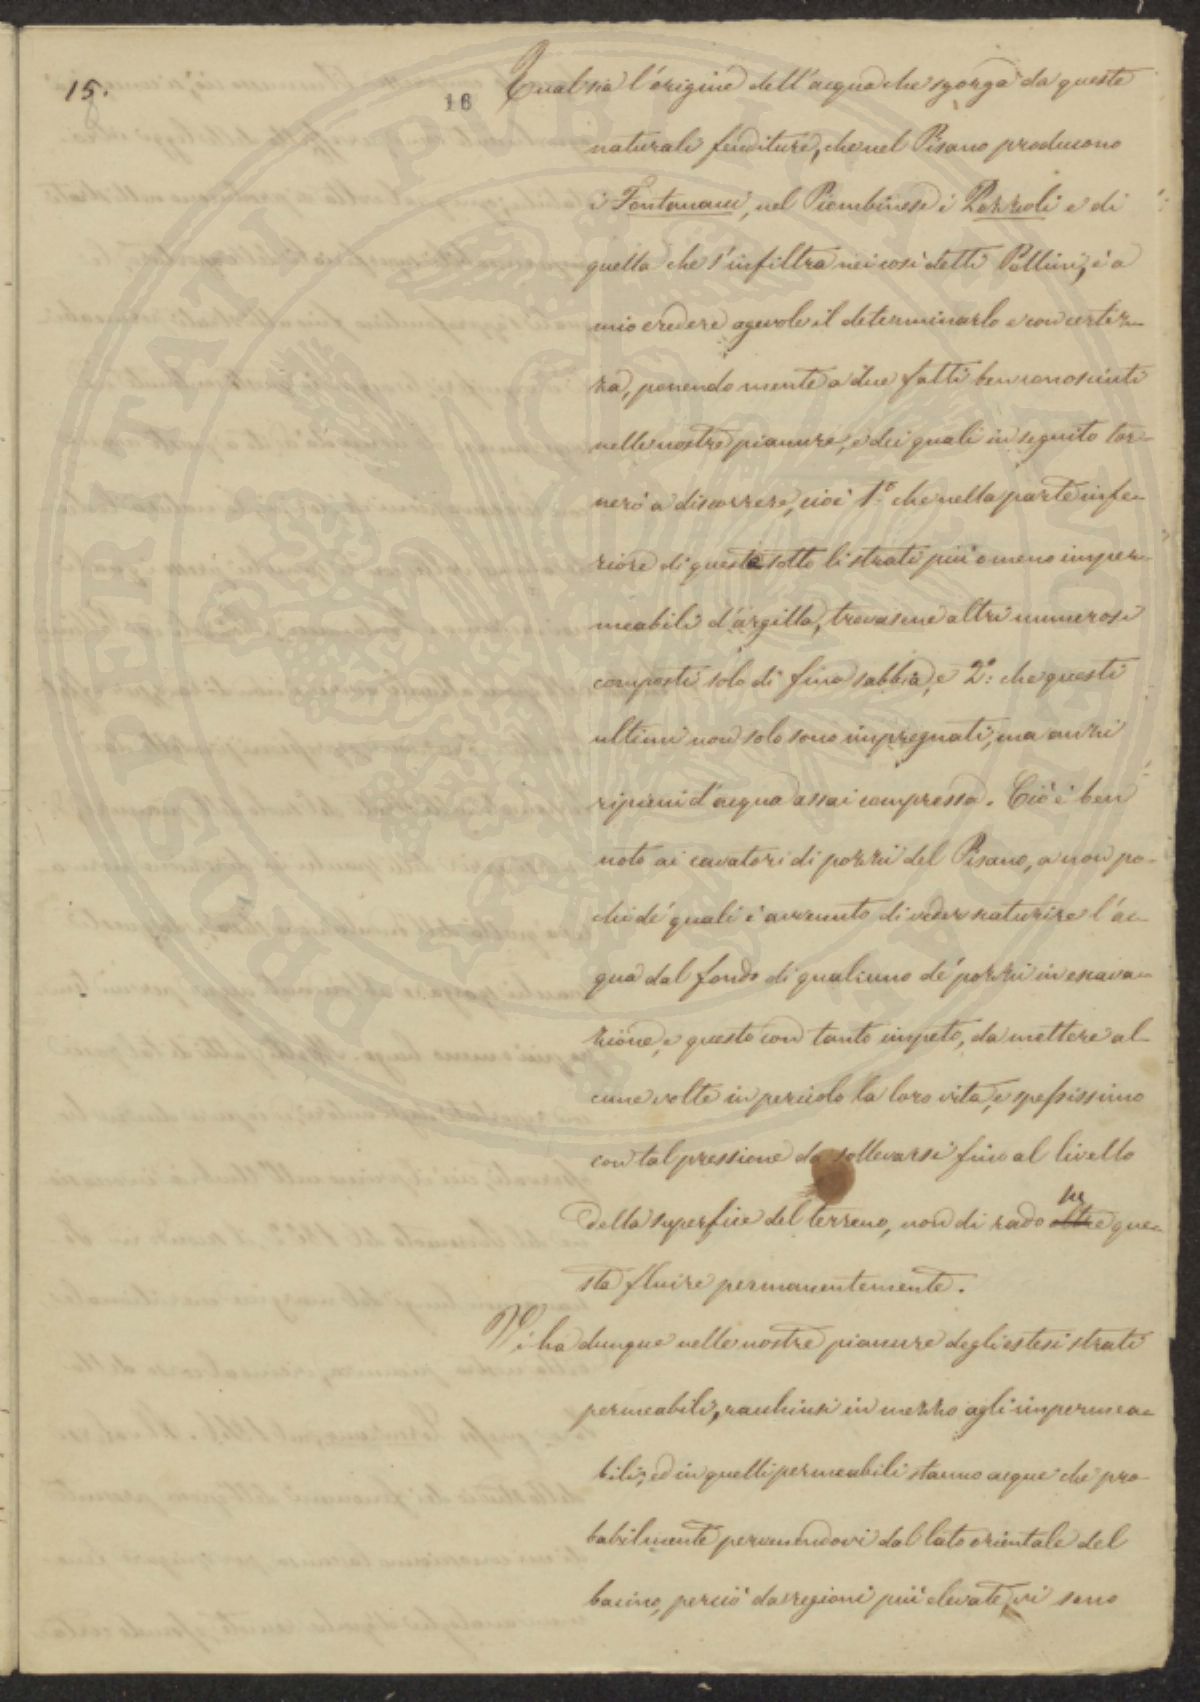 15.
16
Qual sia l'origine dell'acqua che sgorga da queste
naturali fenditure, che nel Pisano producono
i Fontanacci, nel Piombinese i Pozzoli e di
quella che s'infiltra nei così detti Pollini, è a
mio credere agevole il determinarlo e con certez-
za, ponendo mente a due fatti ben conosciuti
nelle nostre pianure, e dei quali in seguito tor-
nerò a discorrere, cioè 1.º che nella parte infe-
riore di queste sotto li strati più o meno imper-
meabili d'argilla, trovasene altri numerosi
composti solo di fina sabbia, e 2º: che questi
ultimi non solo sono impregnati, ma anzi
ripieni d'acqua assai compressa. Ciò è ben
noto ai cavatori di pozzi del Pisano, a non po-
chi de' quali è avvenuto di veder scaturire l'ac-
qua dal fondo di qualcuno de' pozzi in escava-
zione, e questo con tanto impeto, da mettere al-
cune volte in pericolo la loro vita, e spessissimo
con tal pressione da sollevarsi fino al livello
della superfice del terreno, non di rado oltre que-
su
sta fluire permanentemente.
Vi ha dunque nelle nostre pianure degli estesi strati
permeabili, racchiusi in mezzo agli impermea-
bili, ed in quelli permeabili stanno acque che pro-
babilmente pervenendovi dal lato orientale del
bacino, perciò da regioni più elevate, vi sono